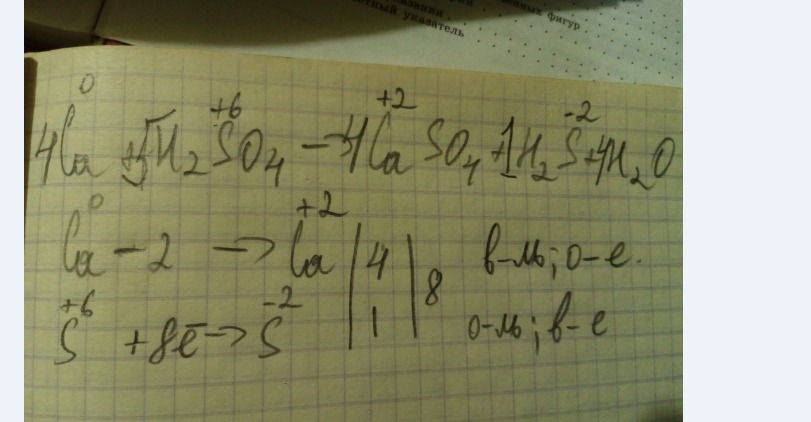 казания
ных фигур
тный указатель
0 +6 +2 -2
4Ca + 5H₂SO₄ → 4CaSO₄ + 1H₂S + 4H₂O
0 +2
Ca - 2 → Ca | 4 | 8 в-ль; о-е.
+6 -2
S + 8e̅ → S | 1 | о-ль; в-е